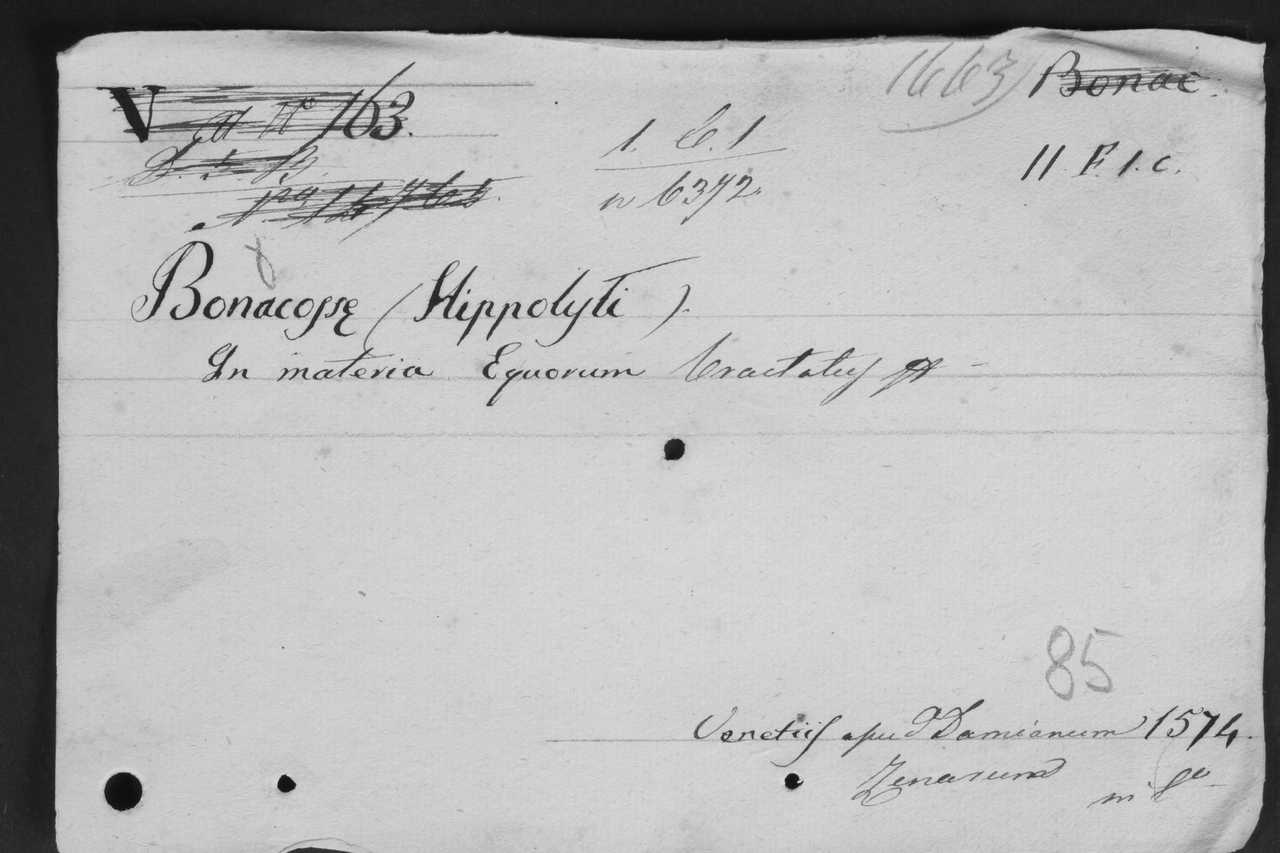 1663) Bonac.
V 163.
1. C. 1
n 6372.
11. F. 1. c.
Bonacossę (Hippolyti).
In materia Equorum Tractatus
85
Venetiis apud Damianum 1574.
Zenarum
in 8o